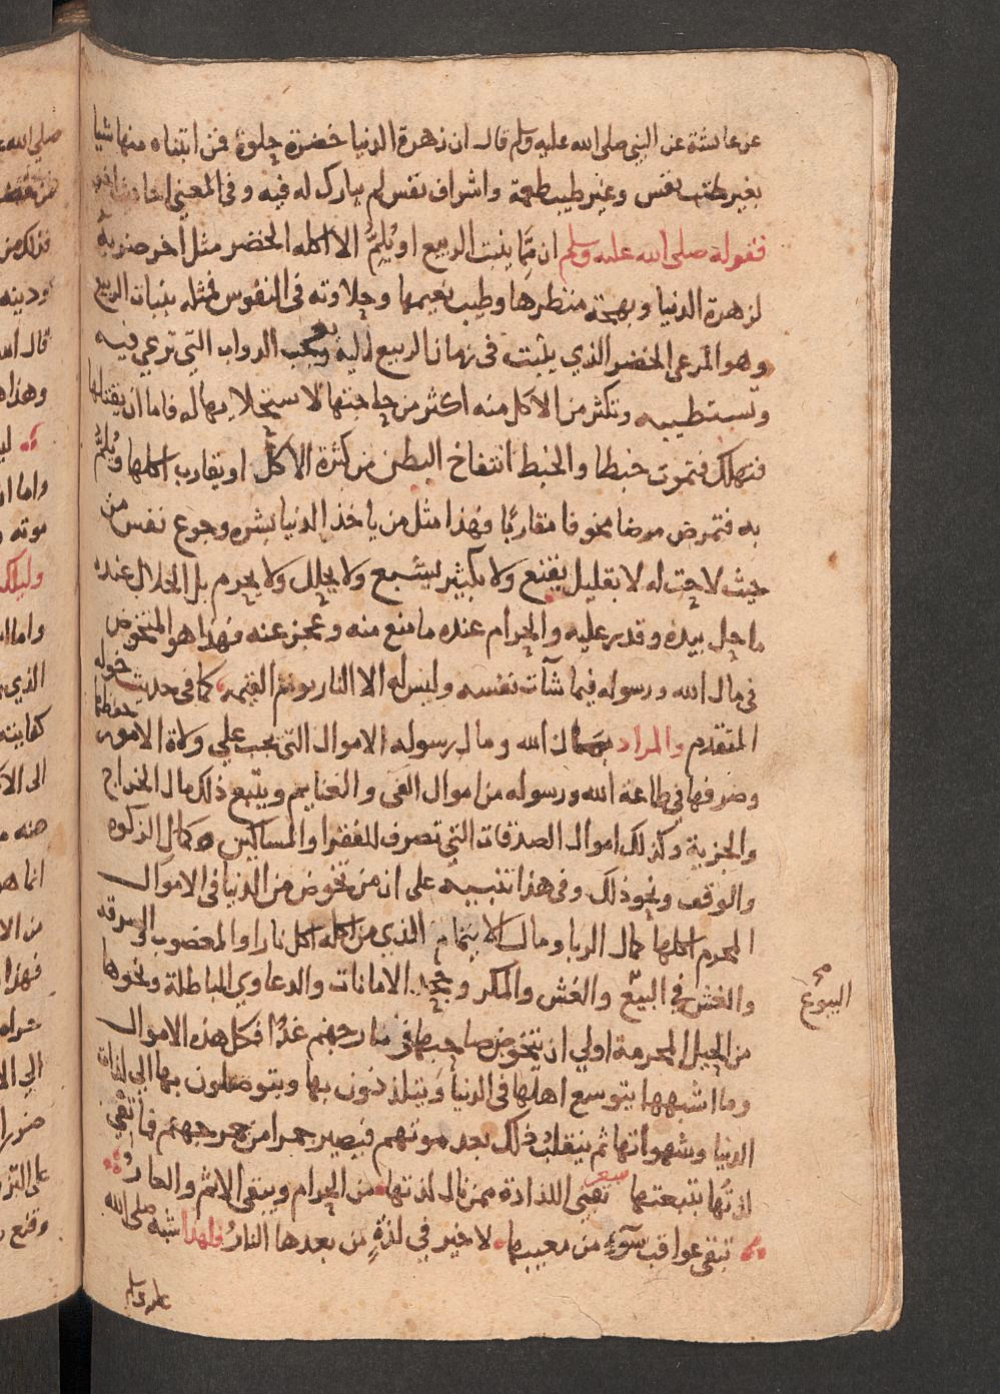 عن عائشة عن النبي صلى الله عليه وسلم قال ان زهرة الدنيا خضرة حلوة فمن اتيناه منها شيا
بغير طيب نفس وغير طيب طعمة واشراف نفس لم يبارك له فيه وفي المعنى احاديث
فقوله صلى الله عليه وسلم ان مما ينبت الربيع او يلم الا اكله الخضر مثل اخر ضربه
لزهرة الدنيا وبهجة منظرها وطيب نعيمها وحلاوته في النفوس فمثله بنبات الربيع
وهو المرعى الخضر الذي ينبت في زمان الربيع يعجب الدواب التي ترعى فيه
وتستطيبه وتكثر من الاكل منه اكثر من حاجتها لاستحلايها له فاما ان يقتلها
فتهلك فتموت حبطا والحبط انتفاخ البطن من كثرة الاكل او يقارب اكلها ويلم
به فتمرض مرضا مخوفا مقاربا فهذا مثل من ياخذ الدنيا بشره وجوع نفس من
حيث لاحت له لا بقليل يقنع ولا بكثير يشبع ولا يحلل ولا يحرم بل الحلال عنده
ما حل بيده وقدر عليه والحرام عنده ما منع منه وعجز عنه فهذا هو المتخوض
في مال الله ورسوله فيما شآت نفسه وليس له الا النار يوم القيمه كما في حديث خوله
المتقدم والمراد بمال الله ومال رسوله الاموال التي يجب على ولاة الامور حفظها
وصرفها في طاعة الله ورسوله من اموال الفى والغنايم ويتبع ذلك مال الخراج
والجزية وكذلك اموال الصدقات التي تصرف للفقرا والمساكين كمال الزكوه
والوقف ونحو ذلك وفي هذا تنبيه على ان من تخوض من الدنيا في الاموال
المحرم اكلها كمال الربا ومال الايتام الذي من اكله اكل نارا والمغصوب والسرقه
والغش في البيع والغش والمكر وجحد الامانات والدعاوي الباطلة ونحوها
البيوع
من الحيل المحرمة اولي ان يتخوض صاحبها في نار جهنم غدا فكل هذه الاموال
وما اشبهها يتوسع اهلها في الدنيا ويتلذذون بها ويتوصلون بها الى لذات
الدنيا وشهواتها ثم ينقلب ذلك بعد موتهم فيصير جمرا من جمر جهنم فما تفي
لذتها بتبعتها تفنى اللذاذة ممن نال لذتها من الحرام ويبقى الاثم والعار
تبقى عواقب سوء من مغيبها لا خير في لذة من بعدها النار فلهذا شبه صلى الله
عليه وسلم